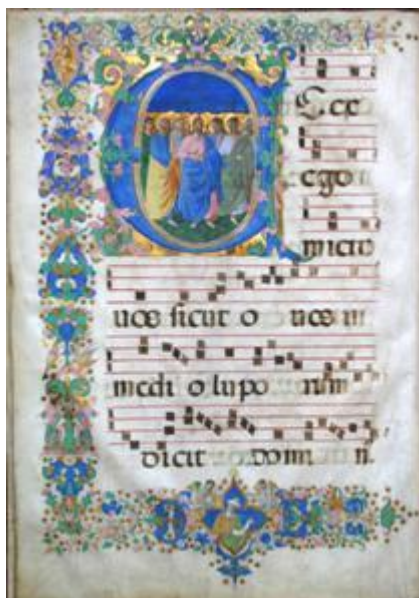 Ecce
ego
micto
uos sicut o ues in
medi o lupo rum
dicit domi n.